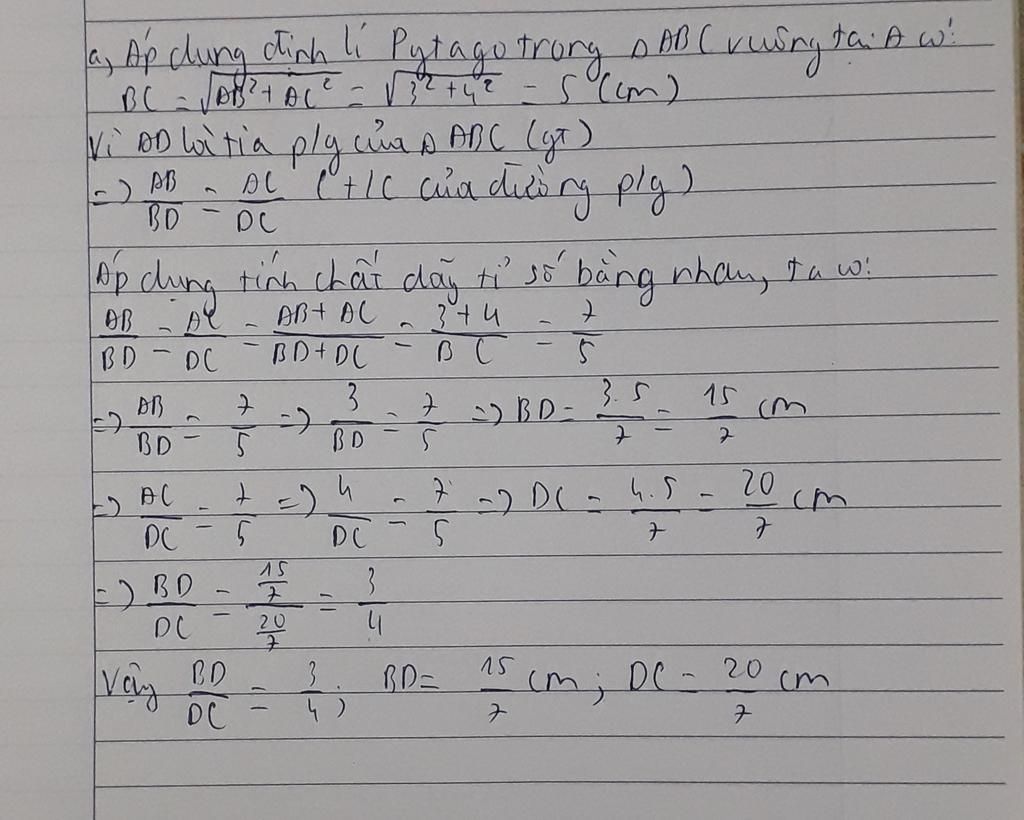 a, Áp dụng định lí Pytago trong Δ ABC vuông tại A có:
BC = √AB² + AC² = √3² + 4² = 5 (cm)
Vì AD là tia p/g của Δ ABC (gt)
=> AB/BD = AC/DC (t/c của đường p/g)
Áp dụng tính chất dãy tỉ số bằng nhau, ta có:
AB/BD = AC/DC = AB + AC/BD + DC = 3 + 4/BC = 7/5
=> AB/BD = 7/5 => 3/BD = 7/5 => BD = 3.5/7 = 15/7 cm
=> AC/DC = 7/5 => 4/DC = 7/5 => DC = 4.5/7 = 20/7 cm
=> BD/DC = 15/7/20/7 = 3/4
Vậy BD/DC = 3/4; BD = 15/7 cm; DC = 20/7 cm